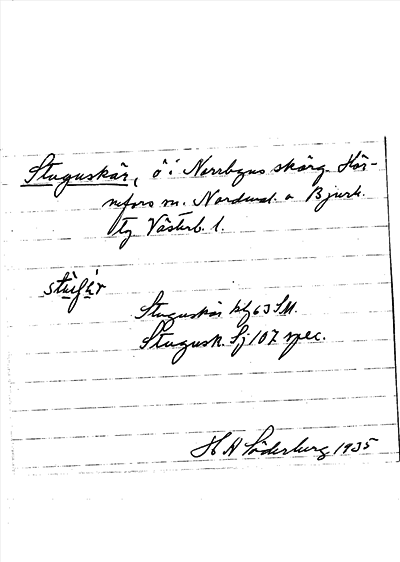 Stuguskär, ö i Norrbyns skärg. Hör-
nefors sn. Nordmal. o Bjurh.
tg Västerb. l.
Stuguskär kbl 63 SM.
Stugusk. Sj 107 spec.
H A Söderberg 1935